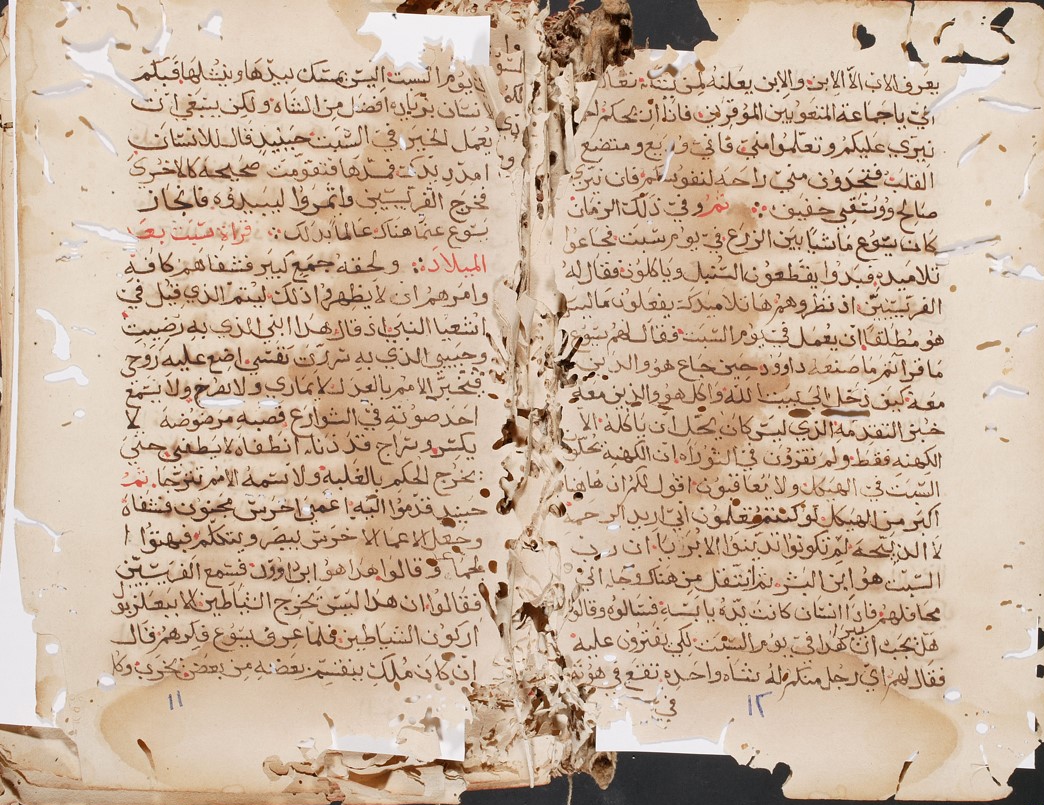 يعرف الاب الا الابن والابن يعلنه لمن يشا تعالوا
الي يا جماعة المتعوبين الموقرين فانا اريحكم احملوا
نيري عليكم وتعلموا مني فاني وديع ومتضع
القلب فتجدون مني راحة لنفوسكم فان نيري
صالح ووسقي خفيف ثم وفي ذلك الزمان
كان يسوع ماشيا بين الزرع في يوم سبت فجاعوا
تلاميده فبدوا يقطعون السنبل وياكلون فقال له
الفريسيين اذ نظروهم ها تلاميدك يفعلون ما ليس
هو مطلقا ان يعمل في يوم السبت فقال لهم يسوع
ما قراتم ما صنعه داوود حين جاع هو والذين
معه كيف دخل الى بيت الله واكل هو والذين معه
خبز التقدمه الذي ليس كان يحل ان ياكله الا
الكهنه فقط ولم تقرون في التوراه ان الكهنه تحل
السبت في الهيكل ولا يعاقبون اقول لكم ان هاهنا
اكبر من الهيكل لو كنتم تعلمون اني اريد الرحمة
لا الذبيحه لم تكونوا تدينوا الابريا ان رب
السبت هو ابن البشر ثم انتقل من هناك وجا الى
محافلهم فاذا انسان كانت يده يابسه فسالوه وقالوا
هل يجب ان يبرى هذا في يوم السبت لكي يفترون عليه
فقال لهم اي رجل منكم له شاه واحده تقع في هوته
في
يوم السبت اليس يمسك بيدها وينشلها فبكم
انسان بزياده افضل من الشاه ولكن ينبغي ان
يعمل الخير في السبت حينيد قال للانسان
امدد يدك فمدها فتقومت صحيحه كالاخرى
فخرج الفريسيين واتمروا ليبيدوه فانحاز
يسوع عنما هناك عالما بذلك قراة سبت بعد
الميلاد ولحقه جمع كبير فشفاهم كافه
وامرهم ان لا يظهروا ذلك ليتم الذي قيل في
اشعيا النبي اذ قال هذا ابني الذي به رضيت
وحبيبي الذي به سرت نفسي اضع عليه روحي
فتخبر الامم بالعدل لا يماري ولا يصيح ولا يسمع
احد صوته في الشوارع قصبه مرضوضه لا
يكسر وسراج قد دنا انطفاه لا يطفي حتى
يخرج الحكم بالغلبه ولاسمه الامم ترتجا ثم
حينيد قدموا اليه اعمى اخرس مجنون فشفاه
وجعل الاعما الاخرس يبصر ويتكلم فبهتوا
وقالوا هدا هو ابن داوود فسمع الفريسيين
فقالوا ان هدا ليس يخرج الشياطين الا ببعلزبول
اركون الشياطين فلما عرف يسوع فكرهم قال
ان كل ملك ينقسم بعضه من بعض يخرب وكل
١١
١٢